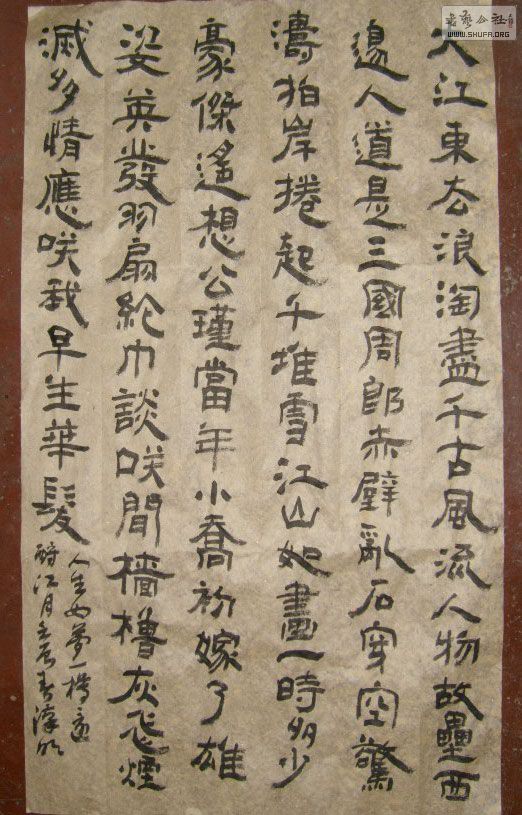 書藝公社
WWW.SHUFA.ORG
大江東去浪淘盡千古風流人物故壘西
邊人道是三國周郎赤壁亂石穿空驚
濤拍岸捲起千堆雪江山如畫一時多少
豪傑遙想公瑾當年小喬初嫁了雄
姿英發羽扇綸巾談咲間檣櫓灰飛煙
滅多情應咲我早生華髮
人生如夢一樽還
酹江月壬辰春